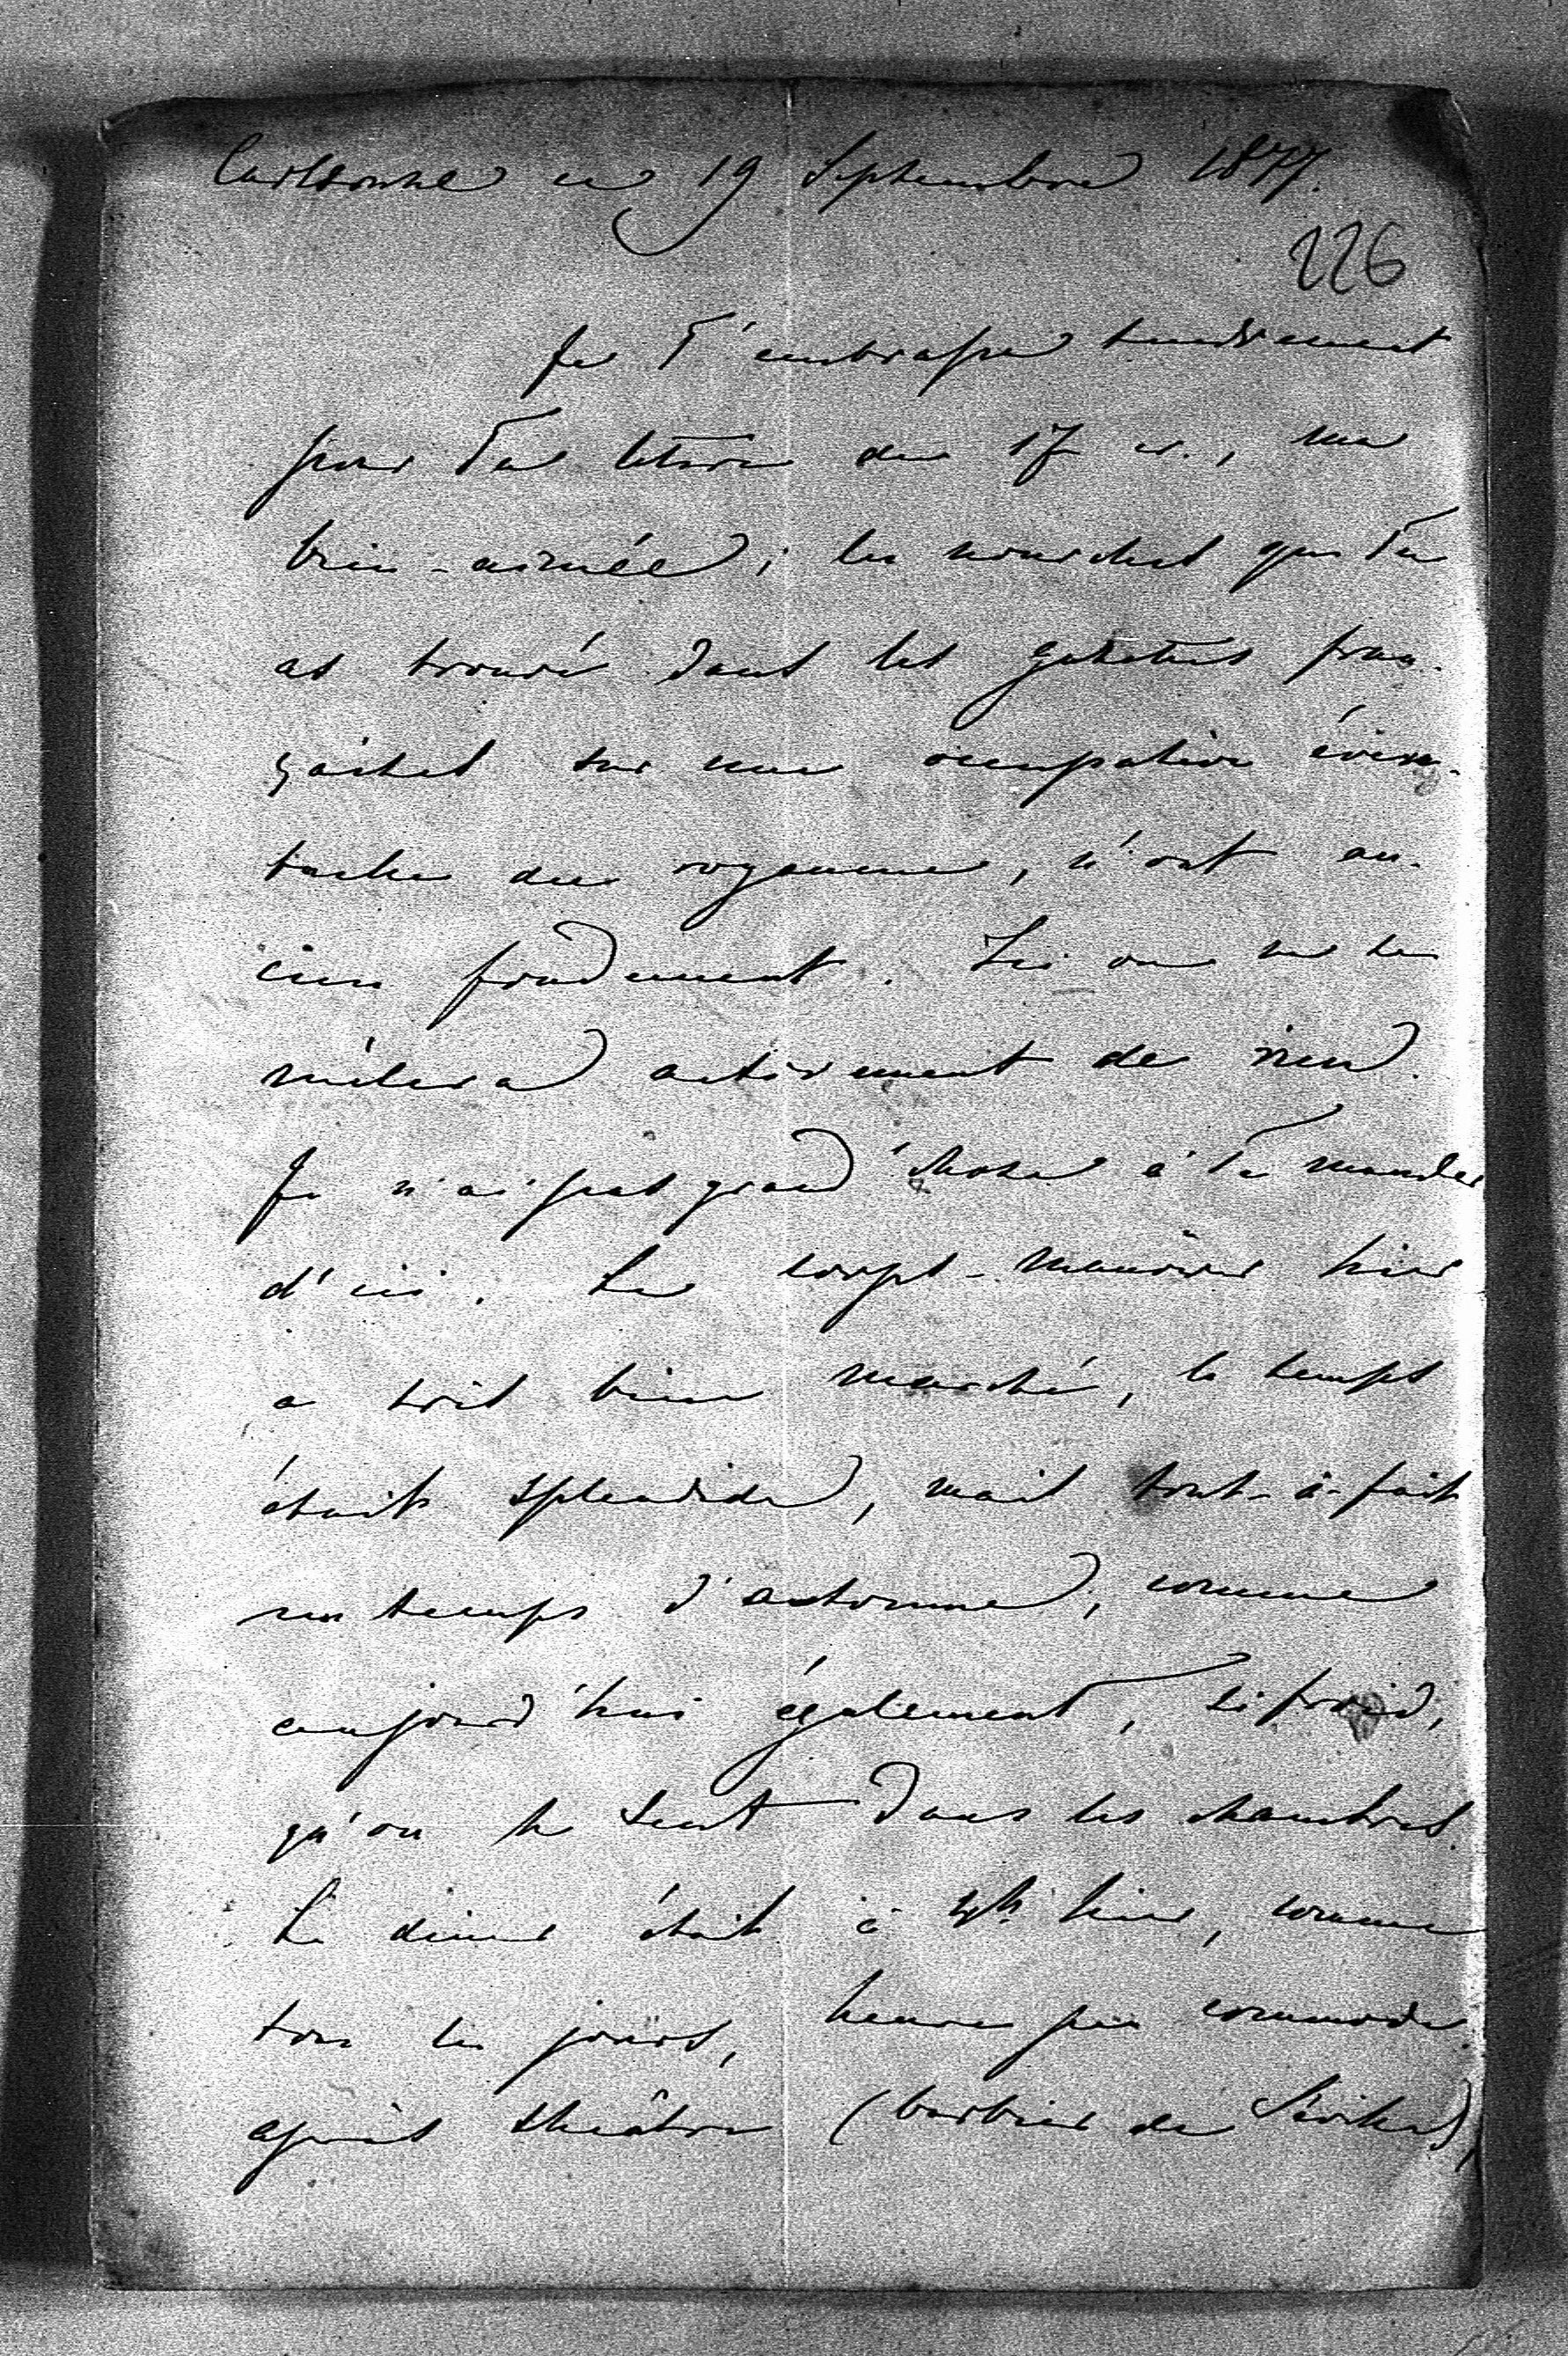 Carlsruhe ce 19 Septembre 1877.
226
Je T'embrasse tendrement
pour Ta lettre du 17 c., ma
bien-aimée; les nouvelles que Tu
as trouvé dans les gazettes fran-
çaises sur une occupation éven-
tuelle du royaume, n'ont au-
cun fondement. Ici on ne se
mêlera activement de rien.
Je n'ai pas grand'chose à Te mander
d'ici. Le corps-manœuvre hier
a très bien marché, le temps
était splendide, mais tout-à-fait
un temps d'automne, comme
aujourd'hui également, si froid,
qu'on le sent dans les chambres.
Le diner était à 4h hier, comme
tous les jours, heure peu commode.
après théâtre (barbier de Séville),